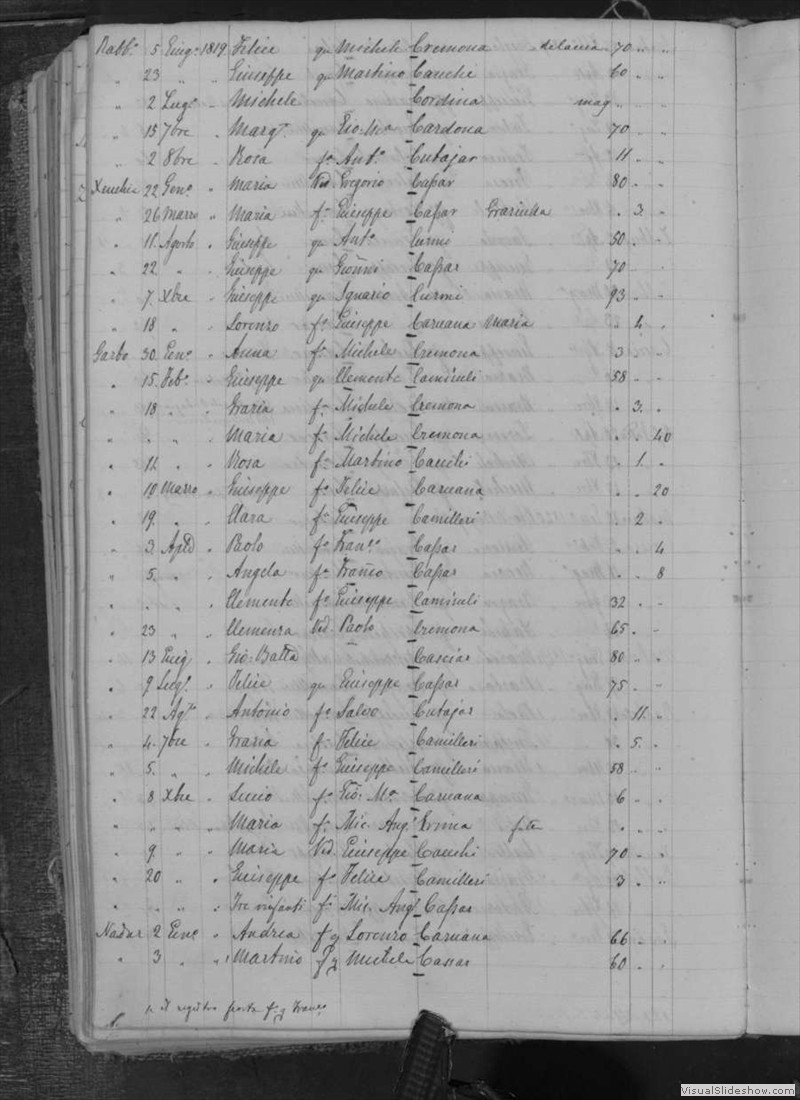 Rabb.o 5 Giug.o 1819 Felice qu Michele Cremona 70 " "
" 23 " " Giuseppe qu Martino Cauchi 60 " "
" 2 Lug.o " Michele Cordina mag " " "
" 15 7bre " Marg.a qu Gio: Ma Cardona 70 " "
" 2 8bre " Rosa fa Ant.o Cutajar 11 " "
Xeuchia 22 Gen.o " Maria Ved. Gregorio Caßar 80 " "
" 26 Marzo " Maria fa Giuseppe Caßar " 3 "
" 11 Agosto " Giuseppe qu Ant.o Curmi 50 " "
" 22 " " Giuseppe qu Gioñni Caßar 70 " "
" 7 Xbre " Giuseppe qu Ignazio Curmi 93 " "
" 18 " " Lorenzo fo Giuseppe Caruana Maria " 4 "
Garbo 30 Gen.o " Anna fa Michele Cremona 3 " "
" 15 Feb.o " Giuseppe qu Clemente Camiuli 58 " "
" 18 " " Grazia fa Michele Cremona " 3 "
" " " " Maria fa Michele Cremona " " 40
" 11 " " Rosa fa Martino Cauchi " 1 "
" 10 Marzo " Giuseppe fo Felice Caruana " " 20
" 19 " " Clara fa Giuseppe Camilleri " 2 "
" 3 Aple " Paolo fo Fran.co Caßar " " 4
" 5 " " Angela fa Franco Caßar " " 8
" " " " Clemente fo Giuseppe Camiuli 32 " "
" 23 " " Clemenza Ved. Paolo Cremona 65 " "
" 13 Giug " Gio: Batta Cascias 80 " "
" 9 Lug.o " Felice qu Giuseppe Caßar 75 " "
" 22 Ag.to " Antonio fo Salvo Cutajar " 11 "
" 4 7bre " Grazia fa Felice Camilleri " 5 "
" 5 " " Michele fo Giuseppe Camilleri 58 " "
" 8 Xbre " Lucio fo Gio: Ma Caruana 6 " "
" " " " Maria fa Mic. Ang.o " " "
" 9 " " Maria Ved. Giuseppe Cauchi 70 " "
" 20 " " Giuseppe fo Felice Camilleri 3 " "
" " " " Tre infanti fi Mic. Angl Caßar
Nadur 2 Gen.o " Andrea f q Lorenzo Caruana 66 " "
" 3 " " Martino f q Michele Cassar 60 " "
il registro porta f.o q Franco
VisualSlideshow.com